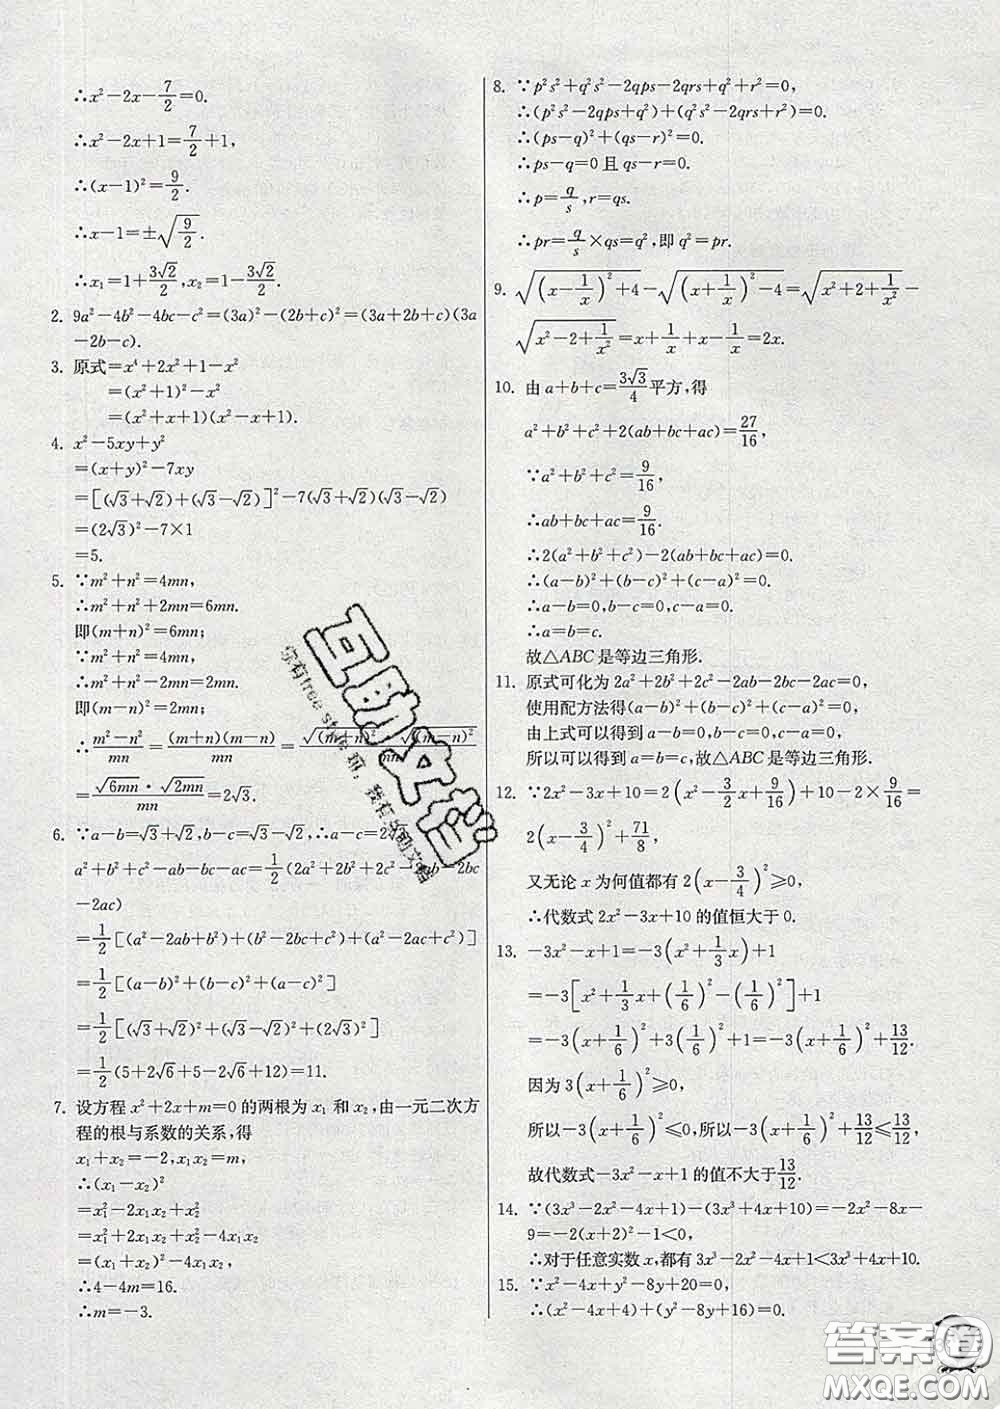 ∴x²-2x-7/2=0.
∴x²-2x+1=7/2+1,
∴(x-1)²=9/2.
∴x-1=±√(9/2).
∴x₁=1+3√2/2,x₂=1-3√2/2.
2. 9a²-4b²-4bc-c²=(3a)²-(2b+c)²=(3a+2b+c)(3a
-2b-c).
3. 原式=x⁴+2x²+1-x²
=(x²+1)²-x²
=(x²+x+1)(x²-x+1).
4. x²-5xy+y²
=(x+y)²-7xy
=[(√3+√2)+(√3-√2)]²-7(√3+√2)(√3-√2)
=(2√3)²-7×1
=5.
5. ∵m²+n²=4mn,
∴m²+n²+2mn=6mn.
即(m+n)²=6mn;
∵m²+n²=4mn,
∴m²+n²-2mn=2mn.
即(m-n)²=2mn;
∴(m²-n²)/mn=(m+n)(m-n)/mn=√(m+n)² √(m-n)²
=√6mn·√2mn/mn=2√3.
6. ∵a-b=√3+√2,b-c=√3-√2,∴a-c=2
a²+b²+c²-ab-bc-ac=1/2(2a²+2b²+2c²-2ab-2bc
-2ac)
=1/2[(a²-2ab+b²)+(b²-2bc+c²)+(a²-2ac+c²)]
=1/2[(a-b)²+(b-c)²+(a-c)²]
=1/2[(√3+√2)²+(√3-√2)²+(2√3)²]
=1/2(5+2√6+5-2√6+12)=11.
7. 设方程x²+2x+m=0的两根为x₁和x₂,由一元二次方
程的根与系数的关系,得
x₁+x₂=-2,x₁x₂=m,
∴(x₁-x₂)²
=x₁²-2x₁x₂+x₂²
=x₁²+2x₁x₂+x₂²-4x₁x₂
=(x₁+x₂)²-4x₁x₂,
∴4-4m=16.
∴m=-3.
8. ∵p²s²+q²s²-2qps-2qrs+q²+r²=0,
∴(p²s²-2qps+q²)+(q²s²-2qrs+r²)=0.
∴(ps-q)²+(qs-r)²=0.
∴ps-q=0且qs-r=0.
∴p=q/s,r=qs.
∴pr=q/s×qs=q²,即q²=pr.
9. √((x-1/x)²+4)-√((x+1/x)²-4)=√(x²+2+1/x²)-
√(x²-2+1/x²)=x+1/x+x-1/x=2x.
10. 由a+b+c=3√3/4平方,得
a²+b²+c²+2(ab+bc+ac)=27/16,
∵a²+b²+c²=9/16,
∴ab+bc+ac=9/16.
∴2(a²+b²+c²)-2(ab+bc+ac)=0.
∴(a-b)²+(b-c)²+(c-a)²=0.
∴a-b=0,b-c=0,c-a=0.
∴a=b=c.
故△ABC是等边三角形.
11. 原式可化为2a²+2b²+2c²-2ab-2bc-2ac=0,
使用配方法得(a-b)²+(b-c)²+(c-a)²=0,
由上式可以得到a-b=0,b-c=0,c-a=0,
所以可以得到a=b=c,故△ABC是等边三角形.
12. ∵2x²-3x+10=2(x²-3/2x+9/16)+10-2×9/16=
2(x-3/4)²+71/8,
又无论x为何值都有2(x-3/4)²≥0,
∴代数式2x²-3x+10的值恒大于0.
13. -3x²-x+1=-3(x²+1/3x)+1
=-3[x²+1/3x+(1/6)²-(1/6)²]+1
=-3(x+1/6)²+3(1/6)²+1=-3(x+1/6)²+13/12.
因为3(x+1/6)²≥0,
所以-3(x+1/6)²≤0,所以-3(x+1/6)²+13/12≤13/12,
故代数式-3x²-x+1的值不大于13/12.
14. ∵(3x³-2x²-4x+1)-(3x³+4x+10)=-2x²-8x-
9=-2(x+2)²-1<0,
∴对于任意实数x,都有3x³-2x²-4x+1<3x³+4x+10.
15. ∵x²-4x+y²-8y+20=0,
∴(x²-4x+4)+(y²-8y+16)=0.
互助文档
你有free style 吗,我有互助文档
答案圈
MXQE.COM